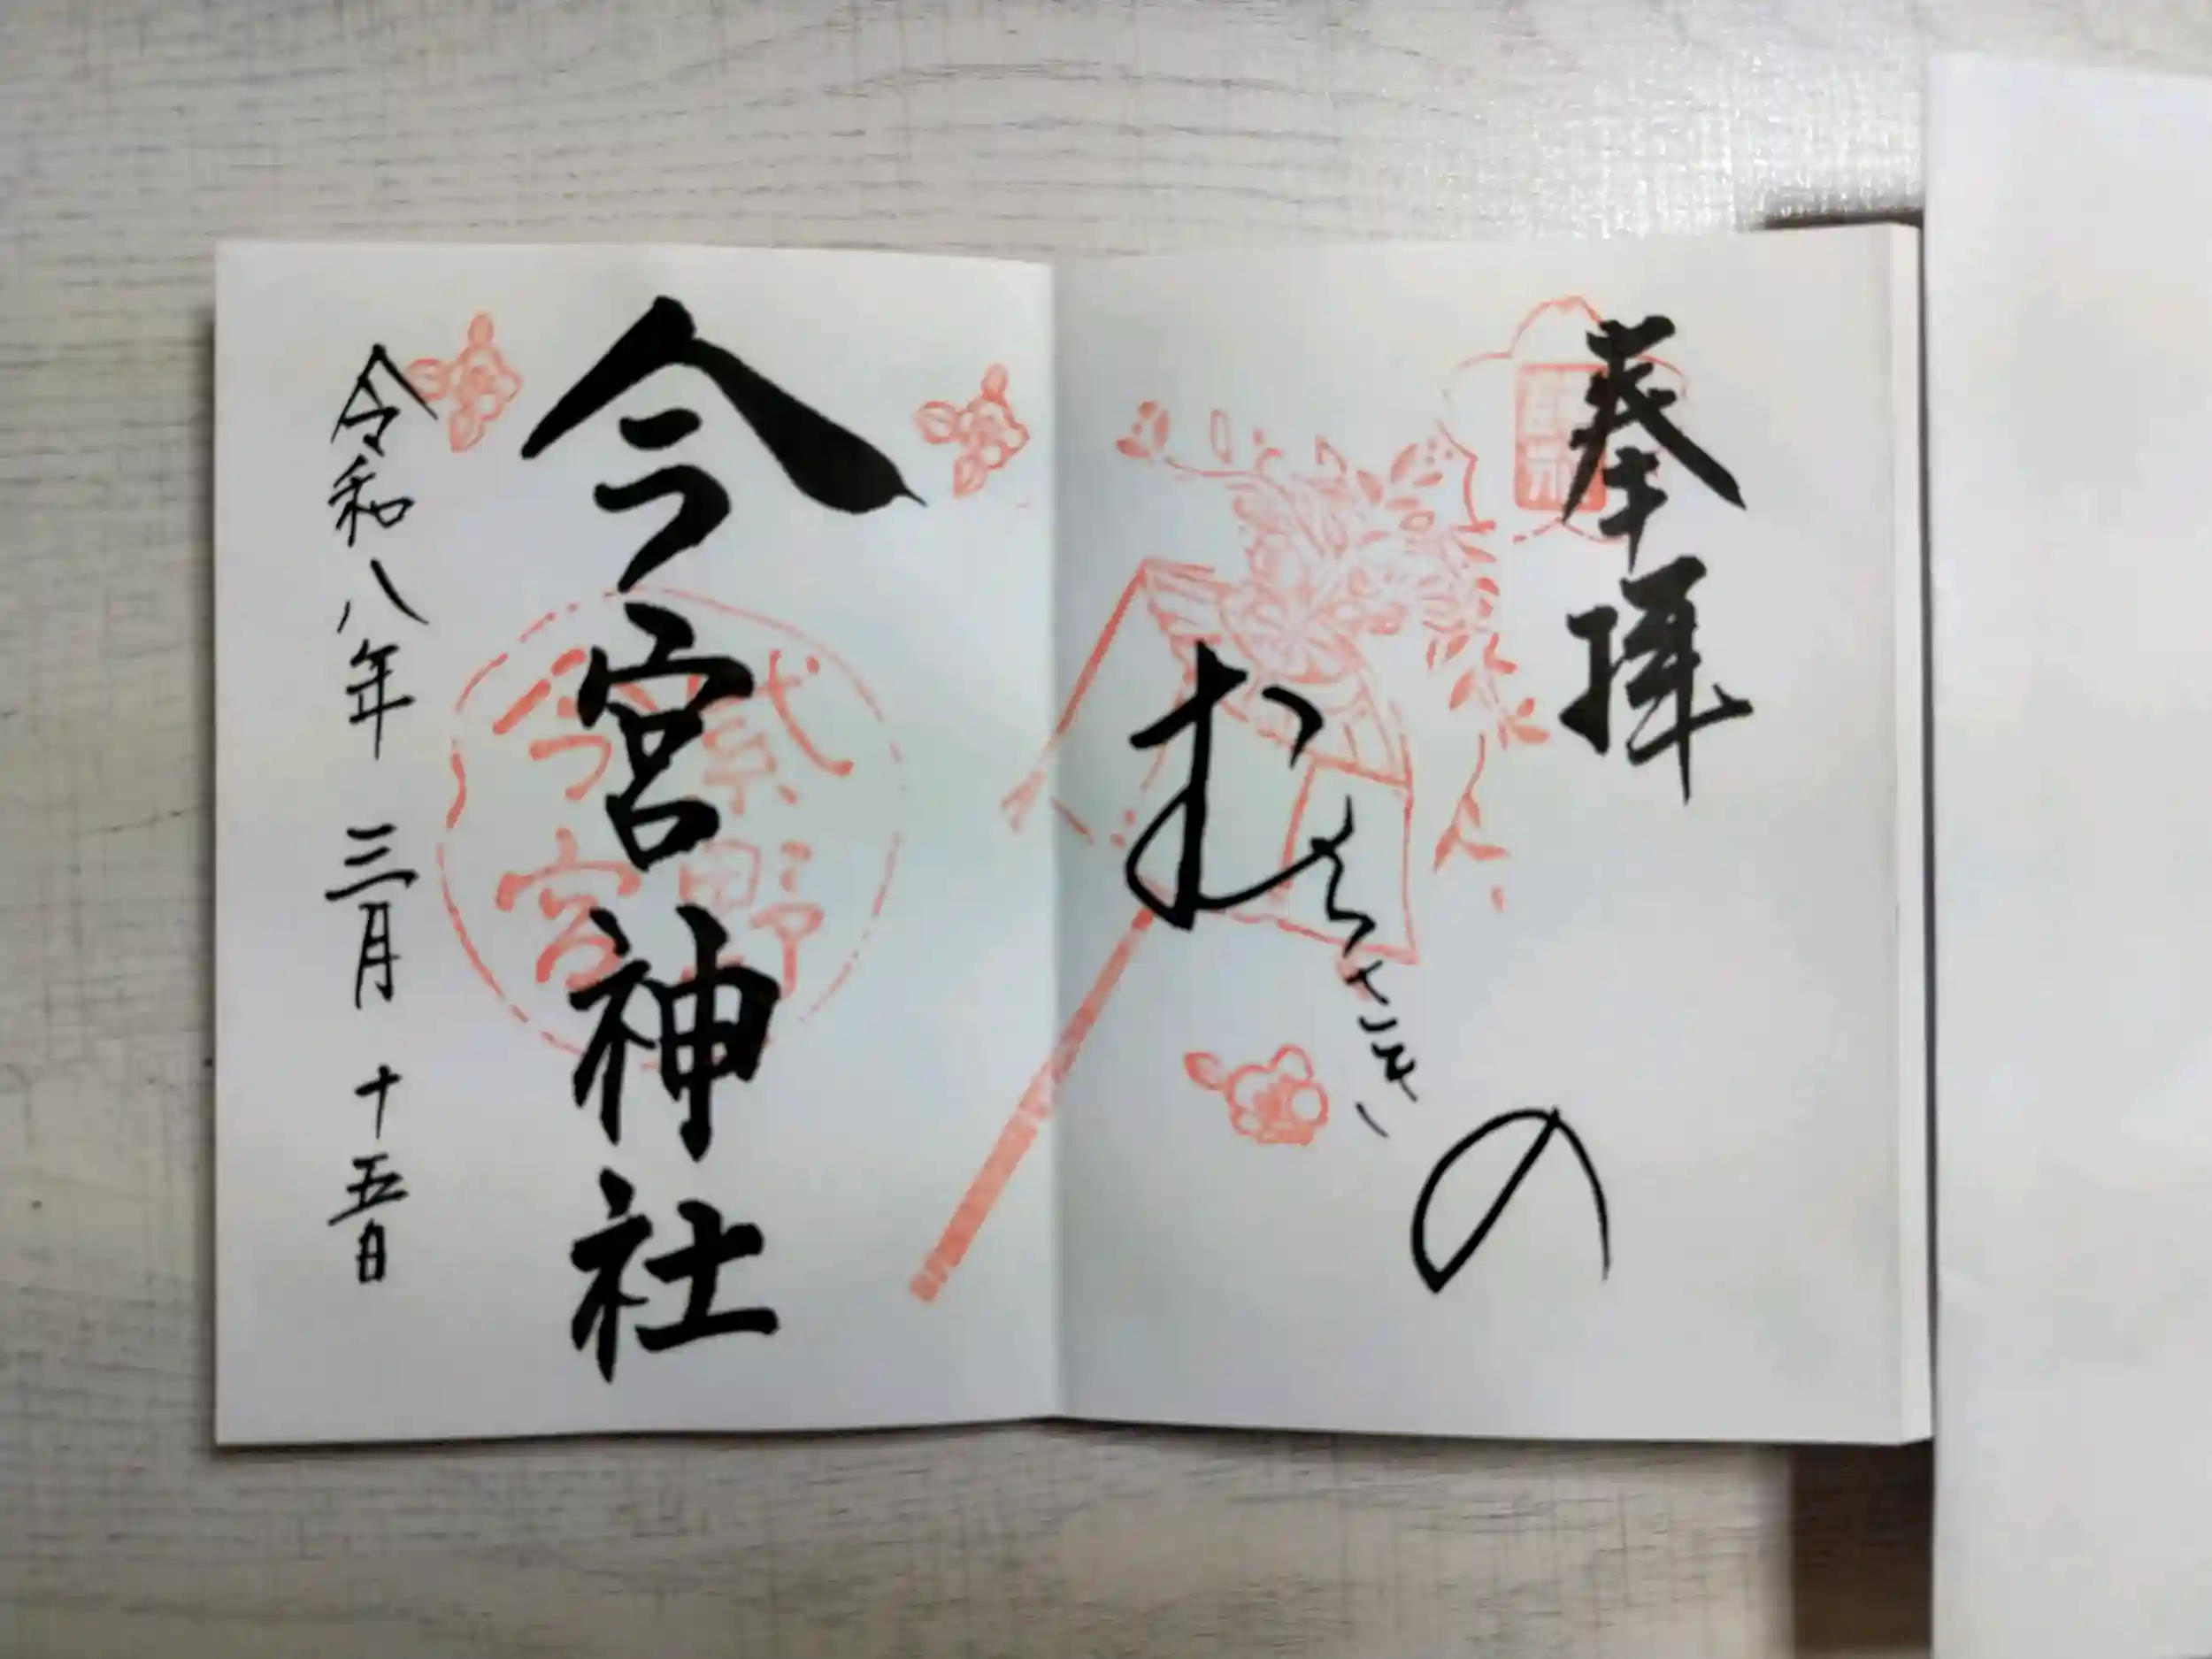 奉拝
むらさきの
今宮神社
紫野
今宮
令和八年 三月 十五日